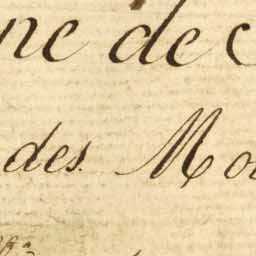 ne de
des. Mo